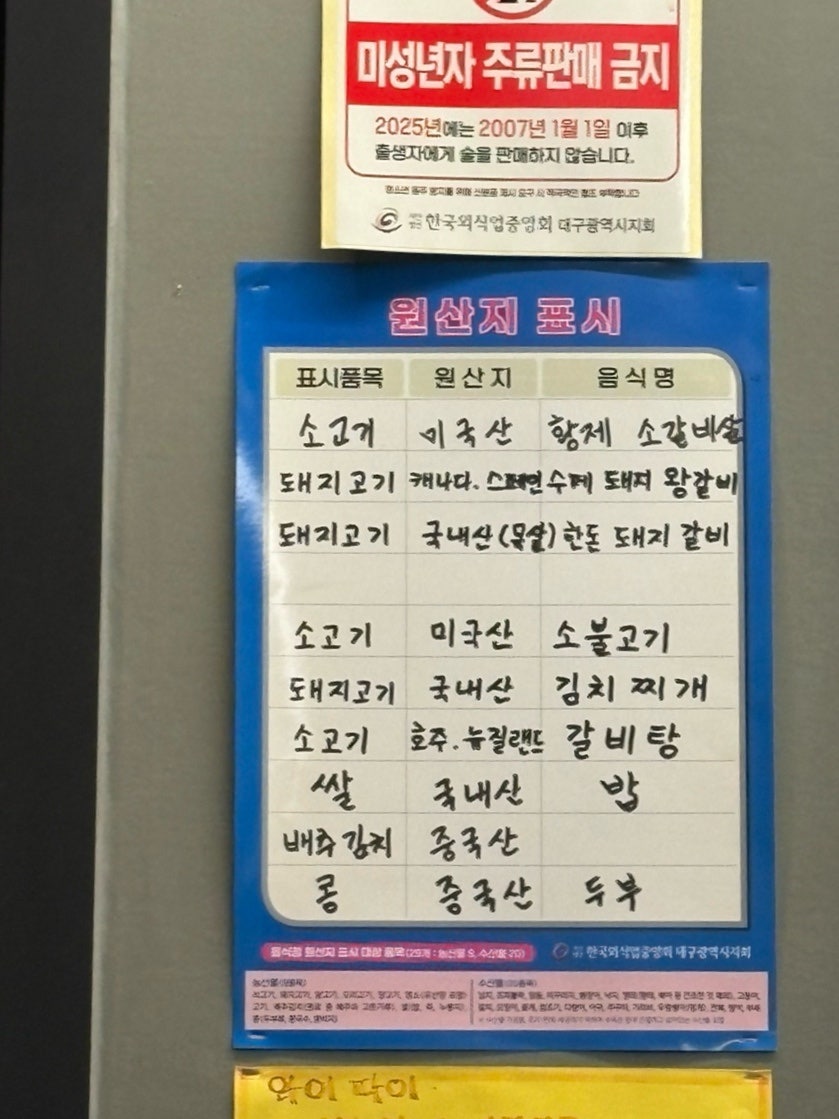 미성년자 주류판매 금지
2025년에는 2007년 1월 1일 이후
출생자에게 술을 판매하지 않습니다.
한국외식업중앙회 대구광역시지회
원산지 표시
표시품목 원산지 음식명
소고기 미국산 황제 소갈비살
돼지고기 캐나다. 스페인 수제 돼지 왕갈비
돼지고기 국내산(목살) 한돈 돼지 갈비
소고기 미국산 소불고기
돼지고기 국내산 김치찌개
소고기 호주.뉴질랜드 갈비탕
쌀 국내산 밥
배추김치 중국산
콩 중국산 두부
음식점 원산지 표시 대상 품목
한국외식업중앙회 대구광역시지회